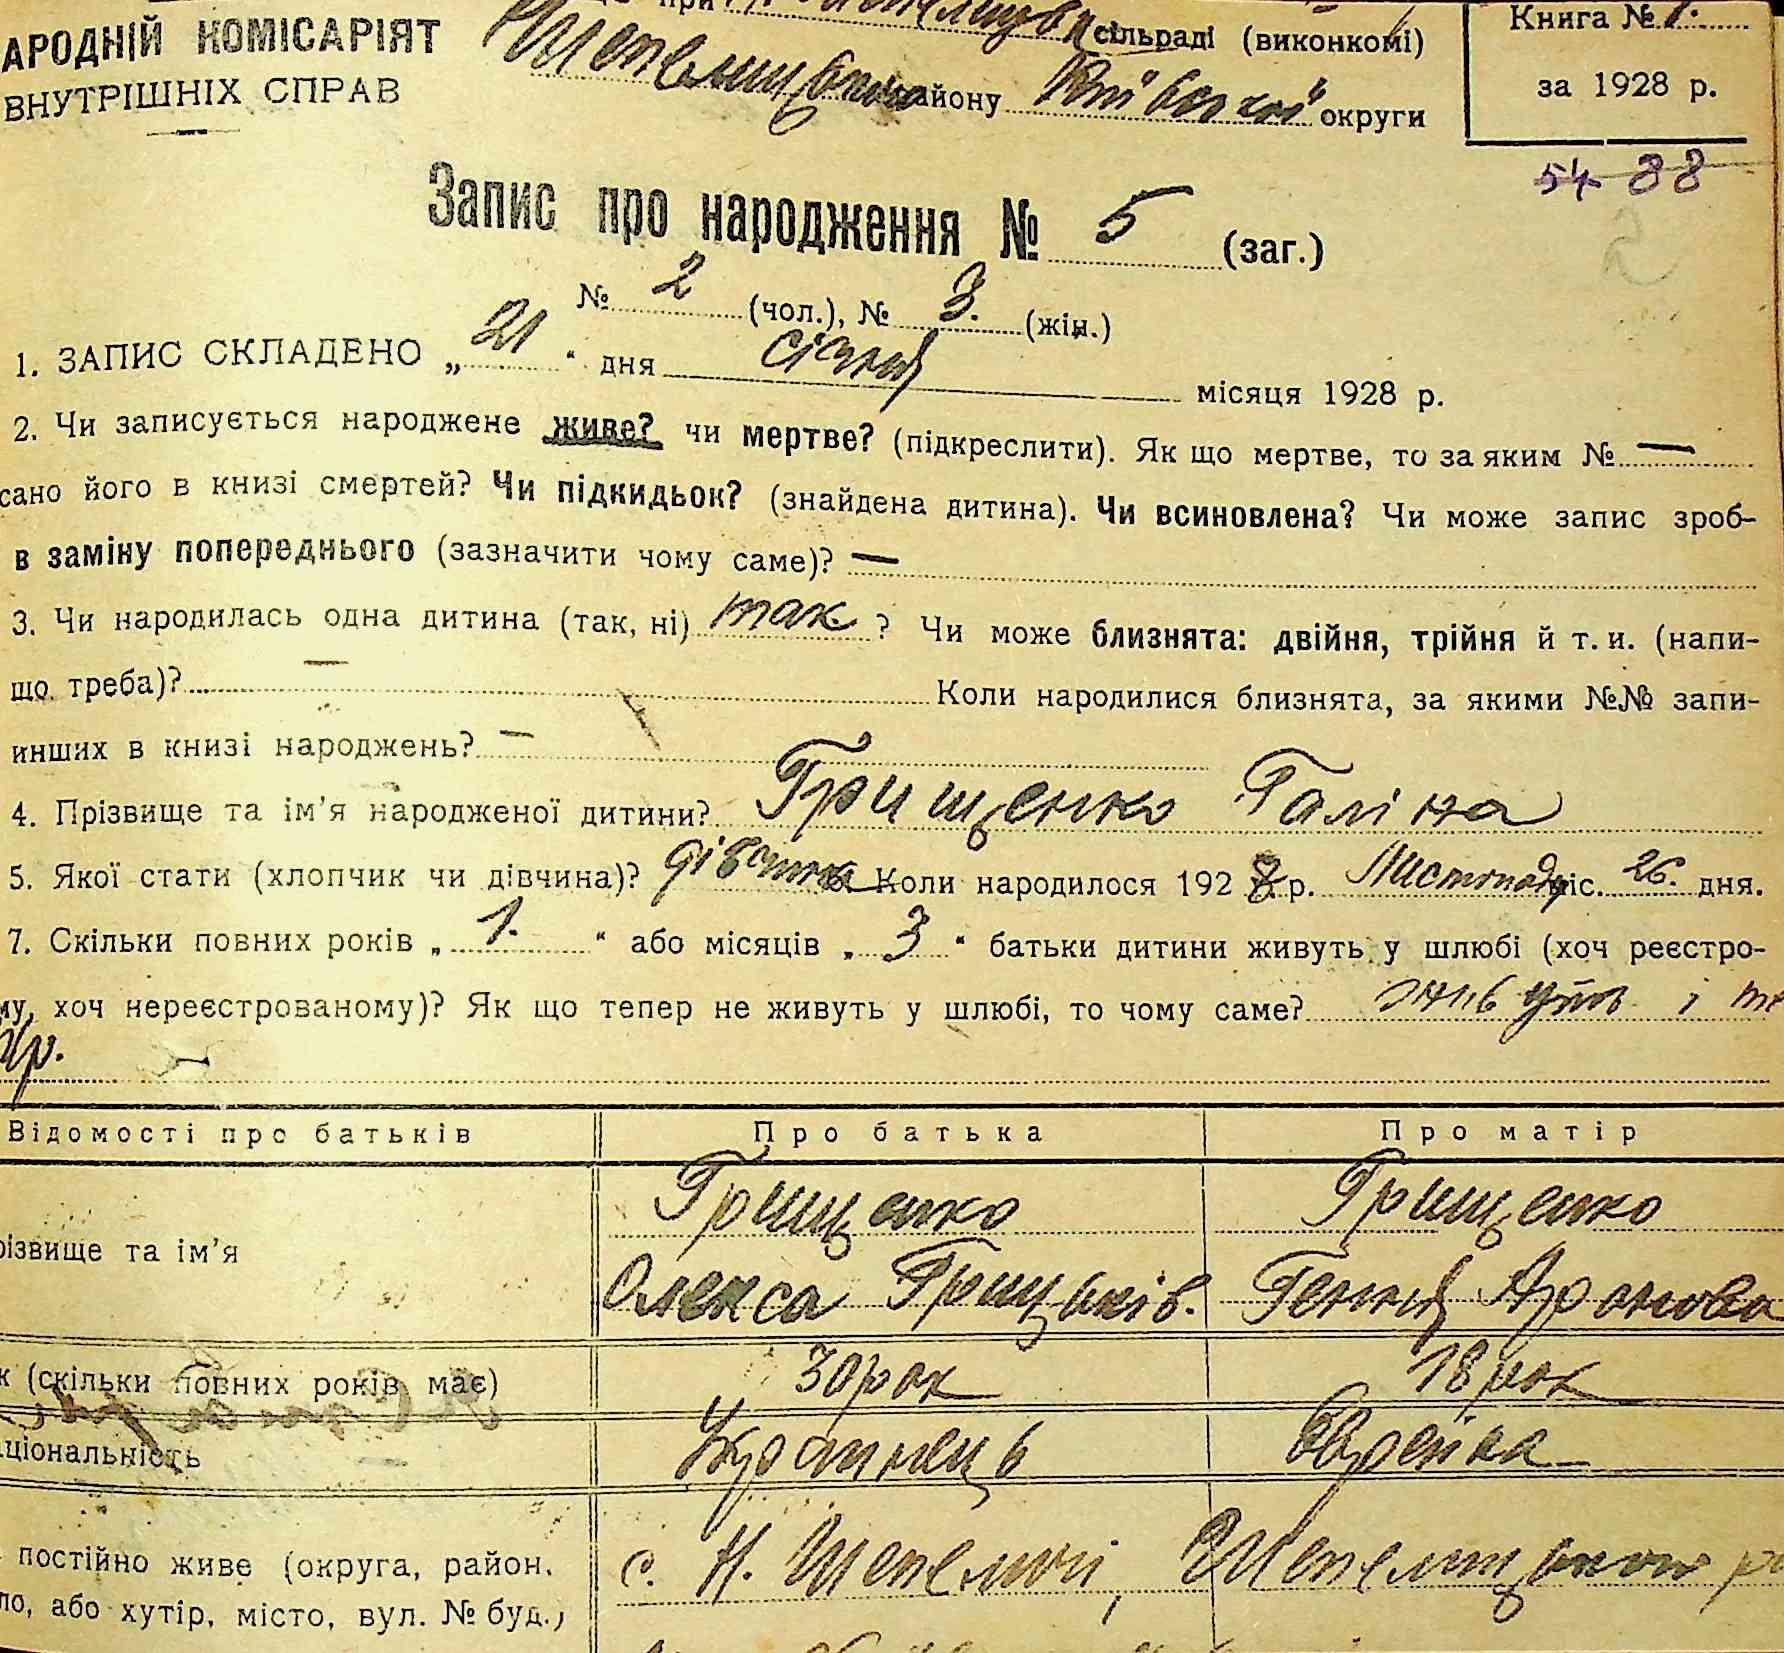 АРОДНІЙ КОМІСАРІЯТ
ВНУТРІШНІХ СПРАВ
при сільраді (виконкомі)
району Київської округи
Книга № 1.
за 1928 р.
54 88
Запис про народження № 5 (заг.)
№ 2 (чол.), № 3. (жін.)
1. ЗАПИС СКЛАДЕНО „ 21 “ дня січня місяця 1928 р.
2. Чи записується народжене живе? чи мертве? (підкреслити). Як що мертве, то за яким № —
сано його в книзі смертей? Чи підкидьок? (знайдена дитина). Чи всиновлена? Чи може запис зроб-
в заміну попереднього (зазначити чому саме)? —
3. Чи народилась одна дитина (так, ні) так. ? Чи може близнята: двійня, трійня й т. и. (напи-
що треба)? — Коли народилися близнята, за якими №№ запи-
инших в книзі народжень? —
4. Прізвище та ім'я народженої дитини? Грищенко Галіна
5. Якої стати (хлопчик чи дівчина)? дівчина Коли народилося 192 р. Листопаду міс. 26. дня.
7. Скільки повних років „ 1. “ або місяців „ 3 “ батьки дитини живуть у шлюбі (хоч реєстро-
му, хоч нереєстрованому)? Як що тепер не живуть у шлюбі, то чому саме? живуть і те
Відомості про батьків Про батька Про матір
різвище та ім'я
Грищенко Грищенко
Олекса Грицьків. Генія Аронова
к (скільки повних років має) 30 рок 18 рок
аціональність Українець Еврейка
постійно живе (округа, район,
ло, або хутір, місто, вул. № буд.)
с. Н. Шепеличі, Шепелицького ра